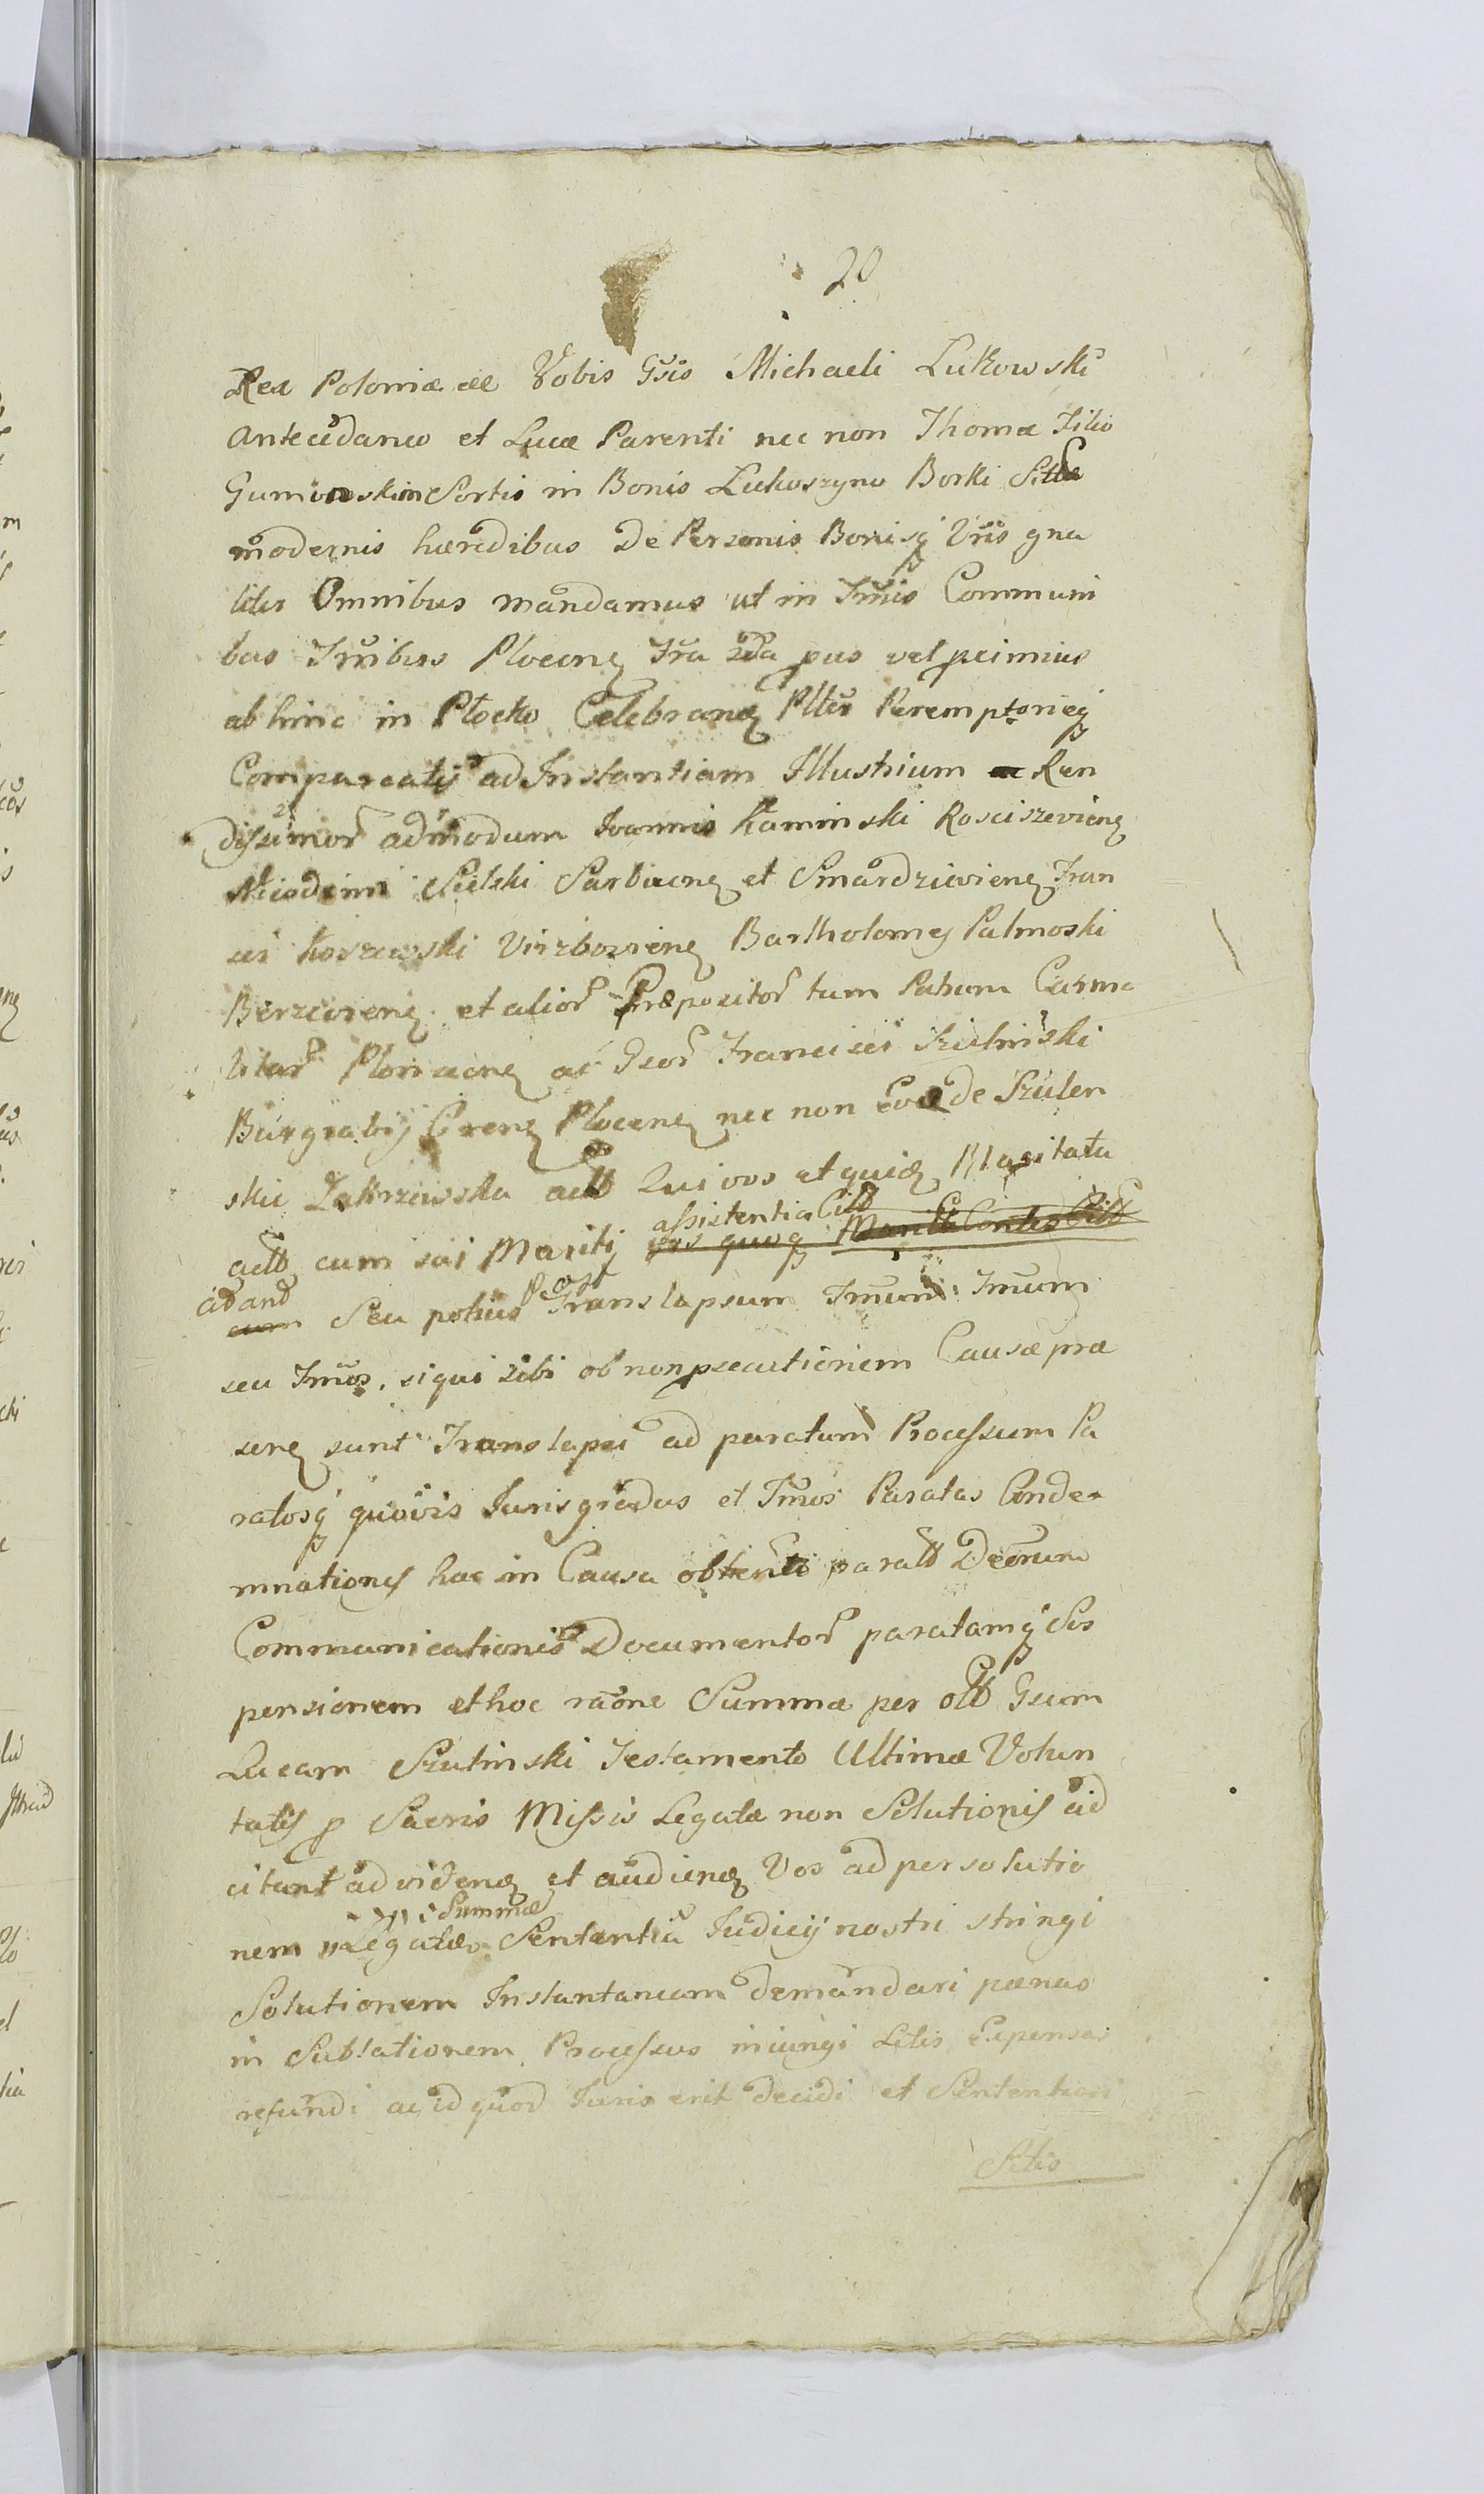 20
Rex Poloniæ etc Vobis Gsis Michaeli Lukowski
Antecedaneo et Lucæ Parenti nec non Thomæ Filio
Gumowskim Sortis in Bonis Lukoszyno Borki
modernis hæredibus De Personis Bonisq Vris gna
liter Omnibus mandamus ut in Tmis Communi
bus Tmibus Plocen Tra pus vel proximius
abhinc in Płocko Celebran Pltr Peremptorieq
Compareatis ad Instantiam Illustrium Ren
dissimor admodum Joannis Kaminski Rosciszevien
Nicodimi Sielski Sarbiecen et Smardzievien Fran
ci Koszewski Virzbovien Bartholomej Palmoski
et alior Præpositor tum Patrum Carme
litar ac Gsor Francisci Szulinski
Burgrabij Cren Plocen nec non Evæ de Szulen
skie Zakrzewska actt Qui vos et quid Maritata
assistentia Citt
actt cum sui Mariti vos quoq
ad and Post
cum Seu potius Translapsum Tmum Tmum
seu Tmos, siqui sibi ob non psecutionem Causæ præ
sen sunt Translapsi ad paratum Processum Pa
ratosq quovis Juris gradus et Tmos Paratas Conde
mnationes hac in Causa obtent paratt Decrum
Communicationis Documentor paratamq Sus
pensionem et hoc raone Summæ per ott Gsum
Lucam Szulinski Testamento Ultimæ Volun
tatis p Sacris Missis Legatæ non Solutionis ad
citant ad viden et audien Vos ad persolutio
Summæ
nem Legatæ Sententia Judicij nostri stringi
Solutionem Instantaneam demandari pænas
in Sublationem Processus iniungi Litis Expensas
refundi ac id quod Juris erit decidi et Sententiari
Sitis